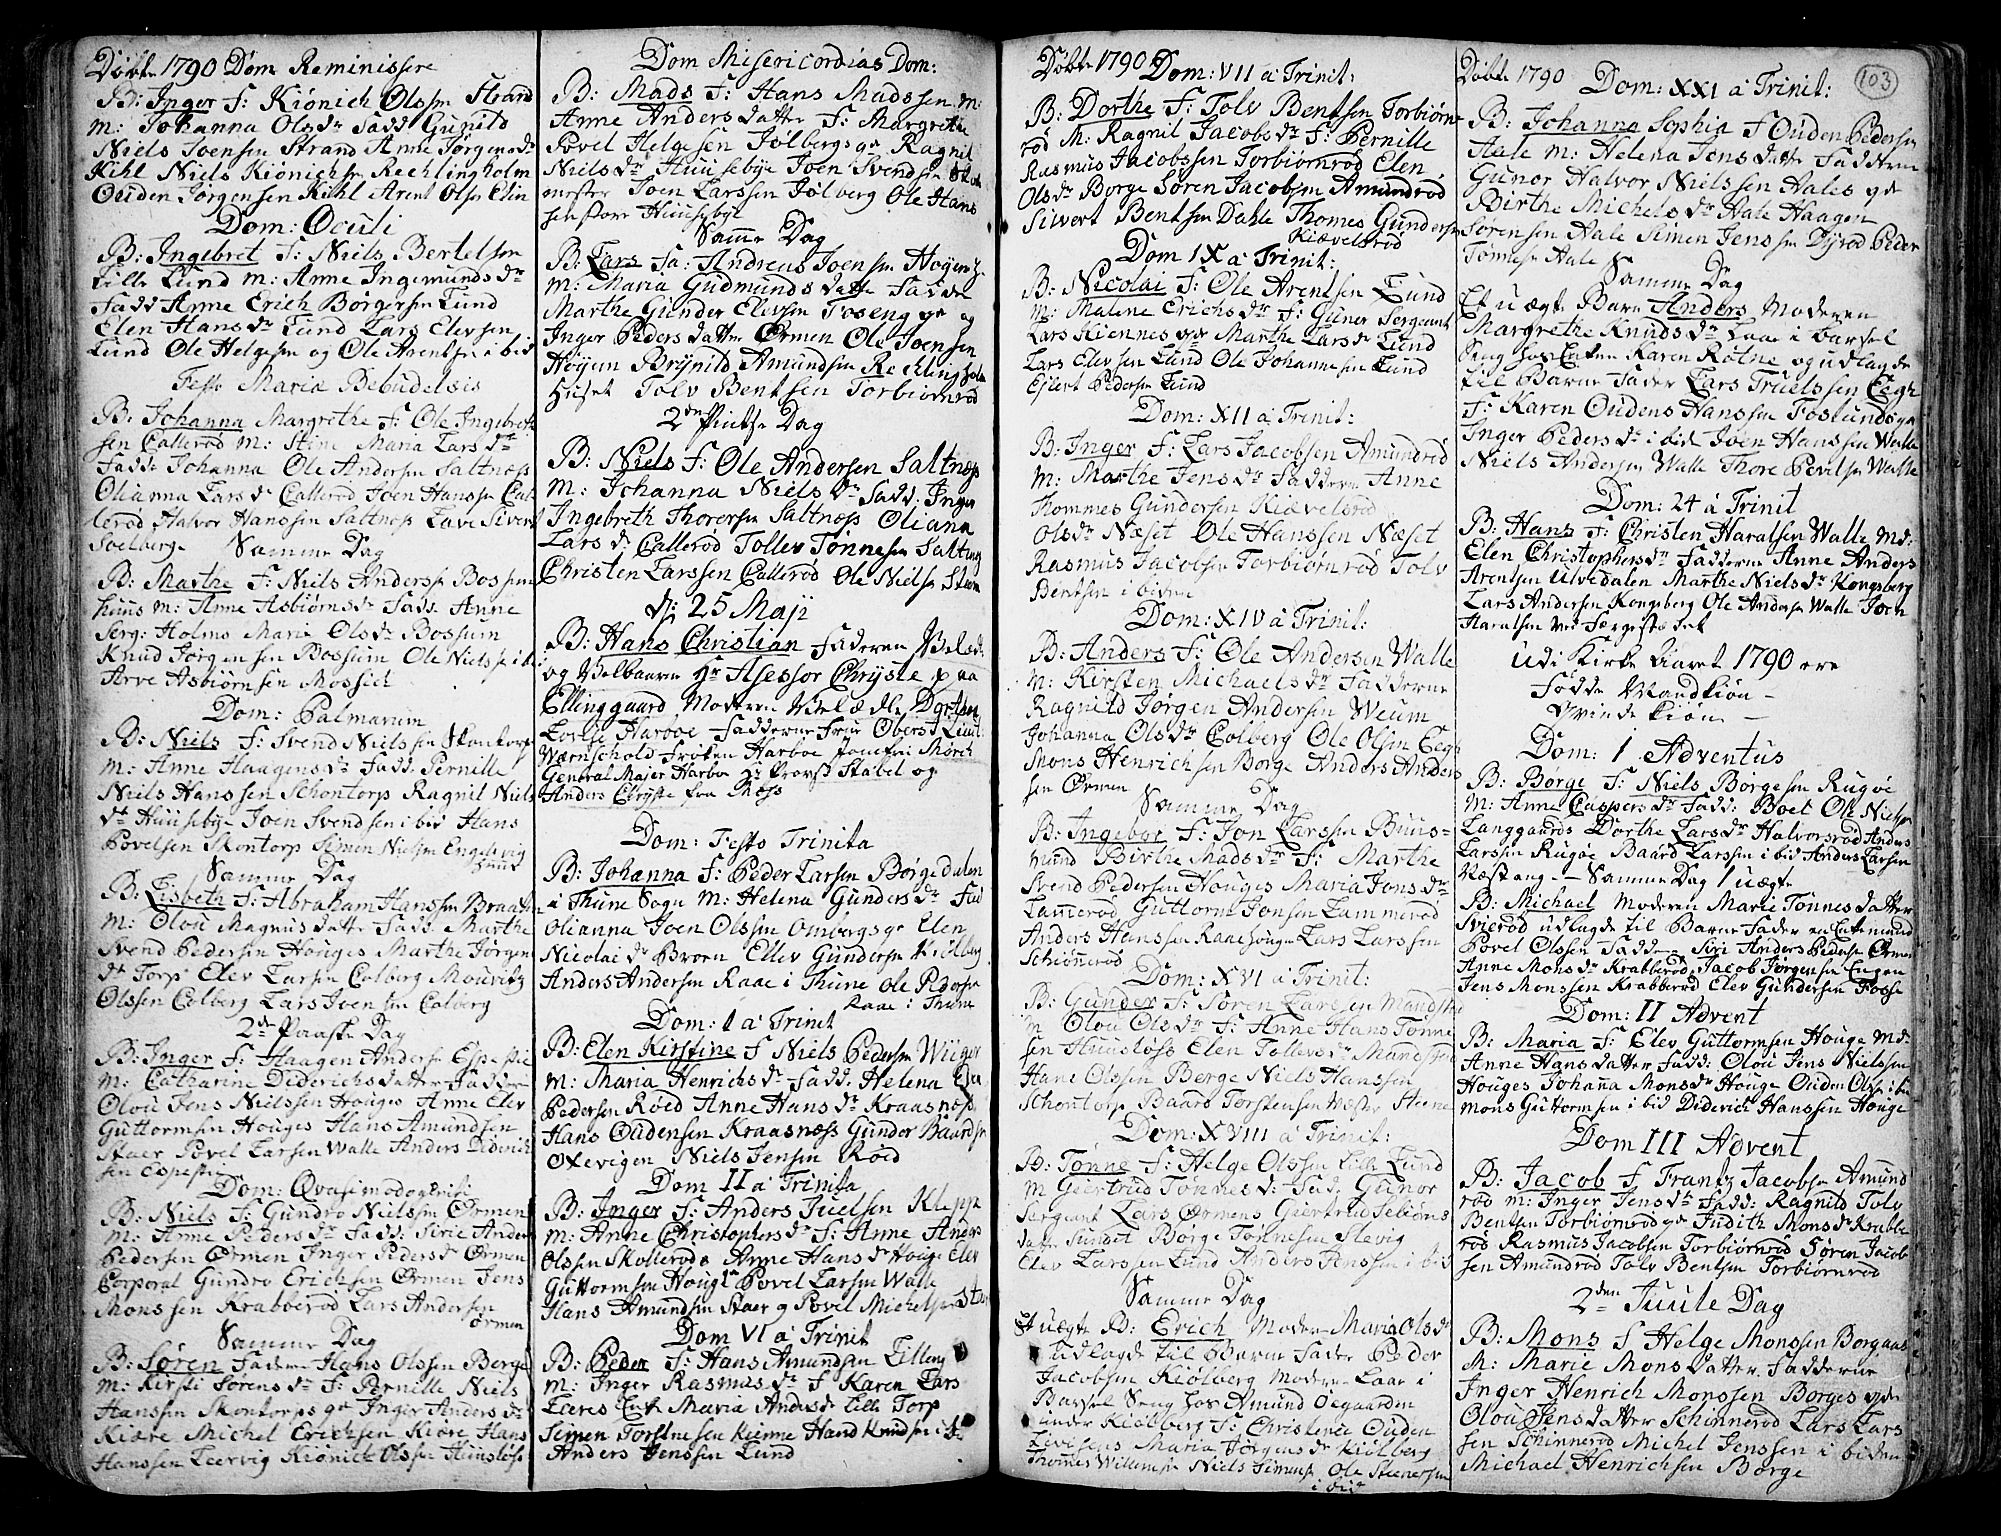 Døbte 1790 Dom Reminissere
B: Inger F: Kiönich Olssen Strand
M: Johanna Olsdr Fadd Gunild
Niels Joensen Strand Anne Jørgensdr
Kihl Niels Kiönichsen Rechlingholm
Ouden Jørgensen Kihl Arent Olsen Elin
Dom: Oculi
B: Ingebret F: Niels Bertelsen
Lille Lund M: Anne Ingemundsdr
Fadd Anne Erich Börgersen Lund
Elen Hansdr Lund Lars Elevsen
Lund Ole Helgesen og Ole Arentsen i bid
Festo Mariæ Bebudelsis
B: Johanna Margrethe F: Ole Ingebreth
sen Callerød M: Stine Maria Larsdr
Fadd: Johanna Ole Andersen Saltnæss
Olianna Larsdr Callerød Joen Hanssen Cal
lerød Halvor Hanssen Saltnæss Lave Sivert
Soelberg
Samme Dag
B: Marthe F: Niels Anders Bossum
huus M: Anne Asbiørnsdr Fadd. Anne
Serg: Holms Marie Olsdr Bossum
Knud Jørgensen Bossum Ole Nielss i bd
Arve Asbiörnsen Mossich
Dom: Palmarum
B: Niels F: Svend Nielssen Skontorp
M: Anne Haagensdr Fadd. Pernille
Niels Hanssen Schontorp Ragnil Niels
dr Huusebye Joen Svendsen i bid Hans
Povelsen Skontorp Simen Nielsen Engelsvig
Samme Dag
B: Lisbeth F: Abraham Hanssen Braaten
M: Olou Magnusdatter Fadd. Marthe
Svend Pedersen Houges Marthe Jørgens
dr Torp Elev Larsen Colberg Mouritz
Olssen Colberg Lars Joensen Colberg
2den Paaske Dag
B: Inger F: Haagen Andersen Espestie
M: Catharine Diderichsdatter Fadder
Olou Jens Nielssen Houges Anne Elev
Guttormsen Houges Hans Amundsen
Staer Povel Larsen Walle Anders Diderich
sen Espestie
Dom: Qvasimodogeniti
B: Niels F: Gundro Nielssen Ørmen
M: Anne Pedersdr Fadd: Sirie Anders
Pedersen Ørmen Inger Pedersdr Ørmen
Corporal Gundro Erichsen Ørmen Jens
Monssen Krabberød Lars Andersen
Ørmen
Samme Dag
B: Søren Faderen Hans Olssen Berge
M: Kirsti Sørensdr F: Pernille Niels
Hanssen Skontorps qe Inger Andersdr
Kiære Michel Erichsen Kiære Hans
Hanssen Leervig Kiönich Olssen Huusløss
Dom Misericordias Dom:
B: Mads F: Hans Madssen M:
Anne Andersdatter F: Margrethe
Povel Helgesen Jølbergs qe Ragnil
Nielsdr Huusebye Joen Svendsen
mester Joen Larssen Jølberg Ole Hans
sen store Huusebye
Samme Dag
B: Lars Fa: Andreas Joensen Høyen
M: Maria Gudmundsdatter Fadder
Marthe Gunder Elevsen Toseng qe og
Inger Pedersdatter Ørmen Ole Joensen
Høyen Brynild Amundsen Rechlingholm
Huset Tolv Bentsen Torbiørnrød
2den Pintse Dag
B: Niels F: Ole Andersen Saltnæss
M: Johanna Nielsdr Fadd. Inger
Ingebreth Thorersen Saltnæss Oliana
Larsdr Callerød Tollev Tønnesen Saltnes
Christen Larssen Callerød Ole Nielsen Steen
d: 25 Maji
B: Hans Christian Faderen Velædl:
og Velbaarne Hr Asessor Chryste paa
Ellinggaard Moderen Velædle Dorthea
Lovise Harboe Fadderne Frue Oberst Lieut:
Wærnschold Frøken Harboe Jomfru Mörch
General Majer Harboe Hr Provst Stabel og
Anders Chryste fra Moss
Dom: Festo Trinita
B: Johanna F: Peder Larsen Børgedalen
i Thune Sogn M: Helena Gundersdr Fad
Olianna Joen Olssen Ombergs qe Elen
Nicolaidr Broen Ellev Gundersen Kiølberg
Anders Andersen Raae i Thune Ole Pedersen
Raae i Thune
Dom: 1 a Trinit
B: Elen Kirstine F Niels Pedersen Wiiger
M: Maria Henrichsdr Fadd. Helena
Pedersen Röed Anne Hansdr Kraasnæss
Hans Oudensen Kraasnæss Gunder Baardsen
Oxevigen Niels Jensen Röed
Dom II a Trinita
B: Inger F: Anders Juelsen Klepp
M: Anne Christophersdr F: Anne Anders
Olssen Skollerøds Anne Hansdr Houge Elev
Guttormsen Houge Povel Larsen Walle
Hans Amundsen Staer g Povel Michelsen Sta
Dom VI a Trinit
B: Peder F: Hans Amundsen Lilleng
M: Inger Rasmusdr F Karen Lars
Leeres Enke Maria Andersdr Lille Torp
Simen Torstensen Kienne Hans Knudsen i
Anders Jenssen Lund
Døbte 1790 Dom: VII a Trinit:
B: Dorthe F: Tolv Bentsen Torbiørn
rød M: Ragnil Jacobsdr F: Pernille
Rasmus Jacobssen Torbiørnrød Elen
Olsdr Borge Søren Jacobsen Amundrød
Sivert Bentsen Dahle Thomes Gundersen
Kiævelsrød
Dom IX a Trinit:
B: Nicolai F: Ole Arentsen Lund
M: Malene Erichsdr F: Guner Sergeant
Lars Kiennes qe Marthe Larsdr Lund
Lars Elevsen Lund Ole Johannesen Lund
Ejlert Pedersen Lund
Dom: XII a Trinit:
B: Inger F: Lars Jacobsen Amundrød
M: Marthe Jensdr Fadderne Anne
Thommes Gundersen Kiævelsrød
Olsdr Næset Ole Hanssen Næset
Rasmus Jacobsen Torbiørnrød Tolv
Bentsen i biden
Dom: XIV a Trinit:
B: Anders F: Ole Andersen Walle
M: Kirsten Michaelsdr Fadderne
Ragnild Jørgen Andersen Weum
Johanna Olsdr Colberg Ole Olsen Eege
Mons Henrichsen Borge Anders Anders
sen Ørmen
Samme Dag
B: Ingebor F: Jon Larssen Buus-
hund Birthe Madsdr F: Marthe
Svend Pedersen Houges Maria Jonsdr
Lammerød Guttorm Jonsen Lammerød
Anders Hanssen Ranehouge Lars Larssen
Schiönnerød
Dom: XVI a Trinit:
B: Gunder F: Søren Larssen Mandskie
M Olou Olsdr F: Anne Hans Tønne
sen Huusløss Elen Tollevsdr Mandskie
Hans Olssen Berge Niels Hanssen
Schontorp Baard Torstensen Wæster Heene
Dom: XVIII a Trinit:
B: Tønne F: Helge Olssen Lille Lund
M Giertrud Tønnesdr: Fad. Gunor
Sergeant Lars Ormens Giertrud Tebiøns
datter Sundet Børge Tønnesen Slevig
Elev Larssen Lund Anders Jenssen i bid
Samme Dag
Et uægte B: Erich Moder Maria Olsdr
udlagde til Barne Fader Peder
Jacobsen Kiølberg Moderen Laae i
Barsel Seng hos Amund Oegaarden
under Kiølberg F: Christence Ouden
Levisens Maria Jørgensdr Kiølberg
Thomes Willemsen Niels Simensen Ole Steenersen
i bid
Døbte 1790 Dom: XXI a Trinit:
103
B: Johanna Sophia F Ouden Pedersen
Aale M: Helena Jensdatter Fadderne
Gunor Halvor Nielssen Aales qe
Birthe Michelsdr Aale Haagen
Sørensen Aale Simen Jenssen Dyrød Peder
Tønnesen Aale
Samme Dag
Et uægte Barn Anders Moderen
Margrethe Knudsdr Laae i Barsel
Seng hos Enken Karen Rötne og udlagde
til Barne Fader Lars Truelssen Eegh
F: Karen Oudens Hanssen Foslunds qe
Inger Pedersdr i bid Joen Hanssen Walle
Niels Andersen Walle Thore Pevelsen Walle
Dom: 24 a Trinit
B: Hans F: Christen Haralsen Walle Md:
Elen Christophersdr Fadderne Anne Anders
Arentsen Ulvedalen Marthe Nielsdr Kongsberg
Lars Andersen Kongsberg Ole Andersen Walle Joen
Haralsen ved Færgestædet
Udi Kirke Aaret 1790 ere
Fødde Mandkiøn -
Qvindekiøn -
Dom: 1 Adventus
B: Borge F: Niels Børgesen Rugøe
M: Anne Caspersdr Fadd: Boel Ole Nielsen
Langgaards Dorthe Larsdr Halvorsrød Anders
Larssen Rugøe Baard Larssen i bid Anders Larsen
Wæsteng - Samme Dag 1 uægte
B: Michael Moderen Marie Tønnesdatter
Svierød udlagde til Barne Fader en Enkemand
Povel Olssen Faddere Siri Anders Pedersen Ørmen
Anne Monsdr Krabberød Jacob Jørgensen Engen
Jens Monssen Krabberød Elev Gundersen Fosse
Dom: II Advent
B: Maria F: Elev Guttormsen Houge Md:
Anne Hansdatter Fadd: Olou Jens Nielssen
Houges Johanna Monsdr Houge Ouden Olssen i bid
Mons Guttormsen i bid Diderich Hanssen Houge
Dom III Advent
B: Jacob F Frantz Jacobsen Amund
rød M: Inger Jensdr Fadd: Ragnild Tolv
Bentsen Torbiørnrød qe Judith Monsdr Krabbe
rød Rasmus Jacobsen Torbiørnrød Søren Jacob
sen Amundrød Tolv Bentsen Torbiørnrød
2den Juule Dag
B: Mons F Helge Monssen Borgaas
M: Marie Monsdatter Fadderne
Inger Henrich Monssen Borges qe
Olou Jensdatter Schinnerød Lars Lars
sen Schinnerød Michel Jenssen i biden
Michael Henrichsen Borge